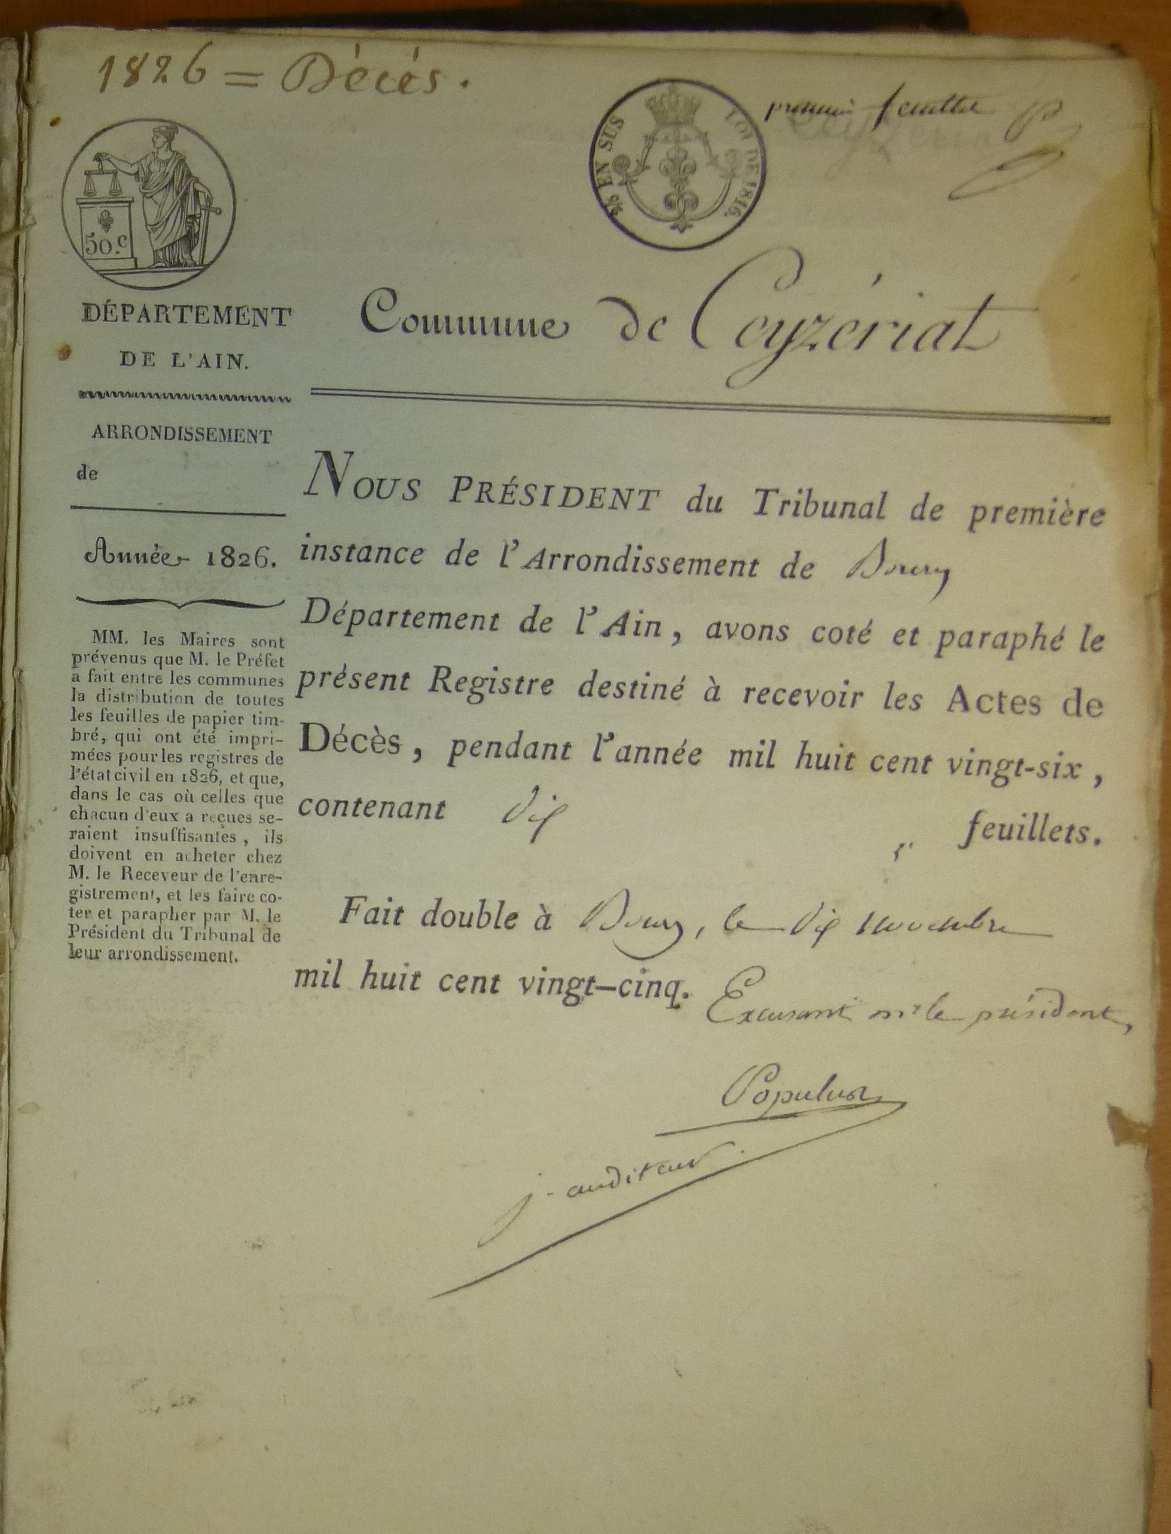 1826 = Décès.
premier feuillet
¼ EN SUS
LOI DE 1816.
50.c
DÉPARTEMENT
DE L'AIN.
Commune de Ceyzériat
ARRONDISSEMENT
de
Année 1826.
MM. les Maires sont
prévenus que M. le Préfet
a fait entre les communes
la distribution de toutes
les feuilles de papier tim-
bré, qui ont été impri-
mées pour les registres de
l'état civil en 1826, et que,
dans le cas où celles que
chacun d'eux a reçues se-
raient insuffisantes, ils
doivent en acheter chez
M. le Receveur de l'enre-
gistrement, et les faire co-
ter et parapher par M. le
Président du Tribunal de
leur arrondissement.
NOUS PRÉSIDENT du Tribunal de première
instance de l'Arrondissement de Bourg
Département de l'Ain, avons coté et paraphé le
présent Registre destiné à recevoir les Actes de
Décès, pendant l'année mil huit cent vingt-six,
contenant dix feuillets.
Fait double à Bourg, le dix novembre
mil huit cent vingt-cinq.
Excusant mr le président,
Populus
j. auditeur.